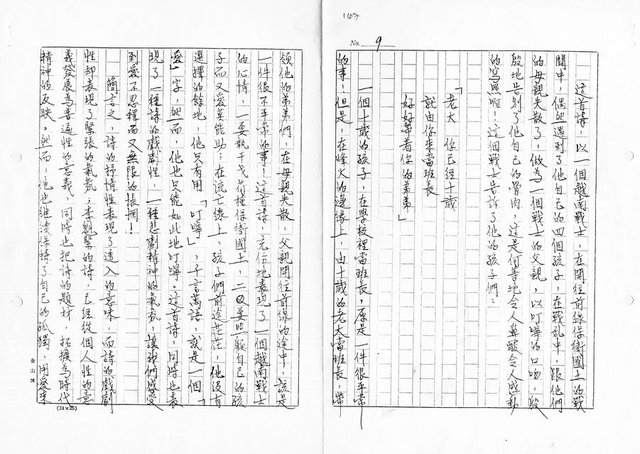 No. 9
這首詩，以一個越南戰士，在開往前線保衛國土的戰
鬪中，偶然遇到了他自己的四個孩子，在戰亂中，跟他們
的母親失散了，做為一個戰士的父親，以叮嚀的口吻，殷
殷地告別了他自己的骨肉，這是何等地令人
的寫照啊！這個戰士告訴了他的孩子們：
「老大　你已經十歲
就由你來當班長
好好帶着你的弟弟」
一個十歲的孩子，在學校裡當班長，原是一件很平常
的事！但是，在烽火的邊緣上，由十歲的老大當班長，帶
領他的弟弟們，在母親失散，父親開往前線的途中，該是
一件很不平常的事！這首詩，充份地表現了一個越南戰士
的心情，一要執干戈以保衛國土，二又要照顧自己的孩
子而又愛莫能助；在流亡線上，孩子們前途茫茫，他沒有
選擇的餘地，他只有用「叮嚀」，千言萬語，就是一個「
愛」字，然而，他也只能如此地叮嚀。這首詩，同時也表
現了一種詩的戲劇性，一種悲劇精神的氣氛，讓我們感受
到愛不忍釋而又無限的悵惘！
簡言之，詩的抒情性表現了淺入的意味，而詩的戲劇
性却表現了緊張的氣氛，李魁賢的詩，已經從個人性的意
義發展為普遍性的意義，同時也把詩的題材，拓擴為時代
精神的反映。然而，他也維護保持了自己的孤獨，用愛來
(24×25)
金山牌